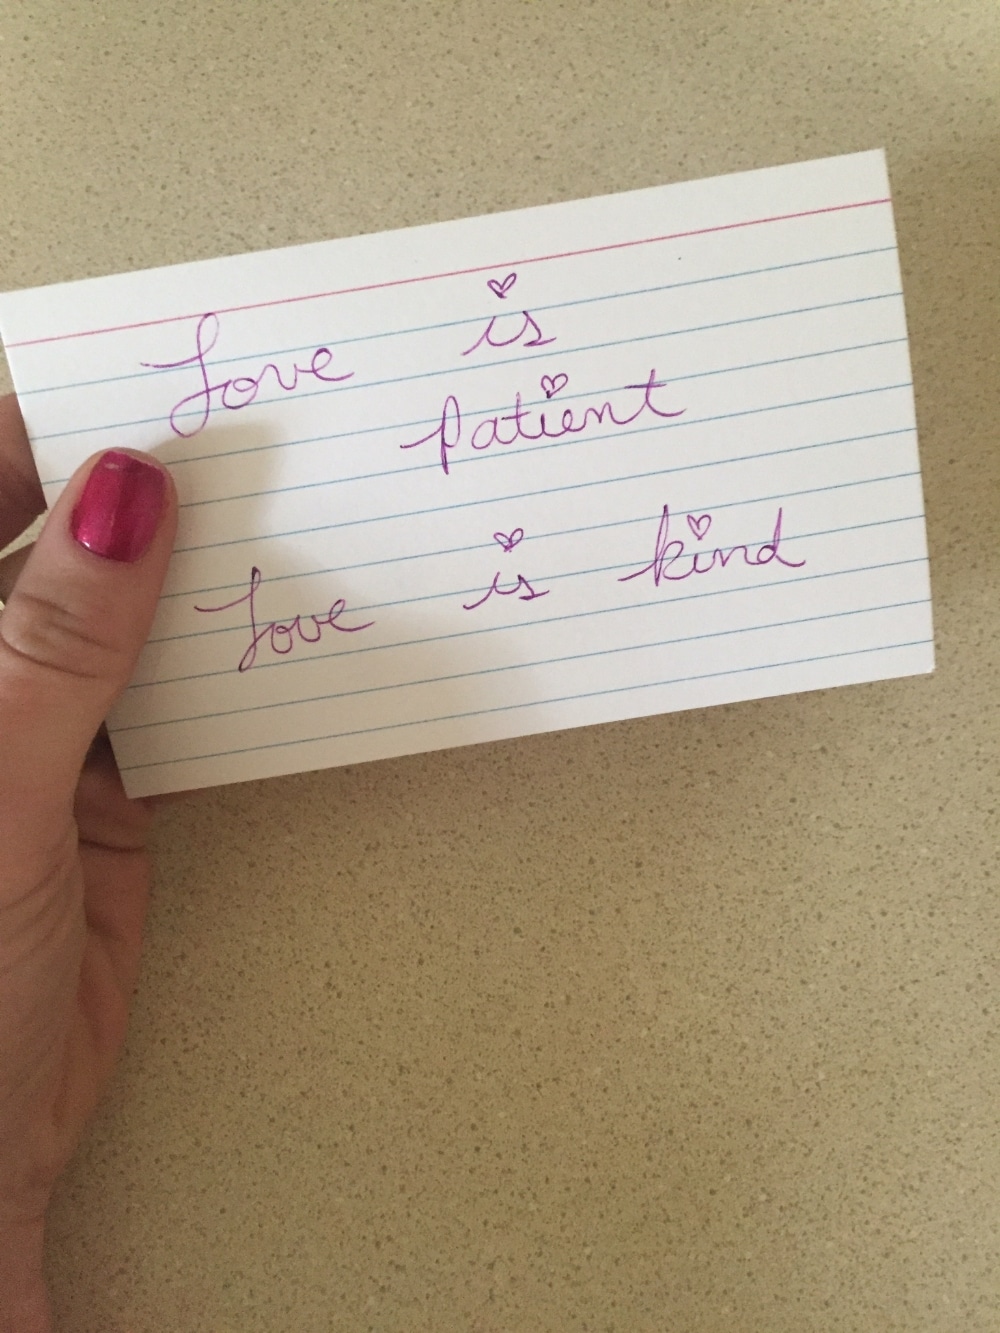 Love is
patient
Love is kind